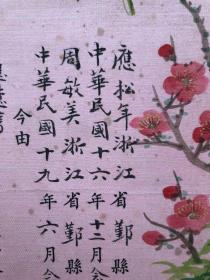 應松年浙江省鄞縣
中華民國十六年十二月
周敏美浙江省鄞縣
中華民國十九年六月
今由